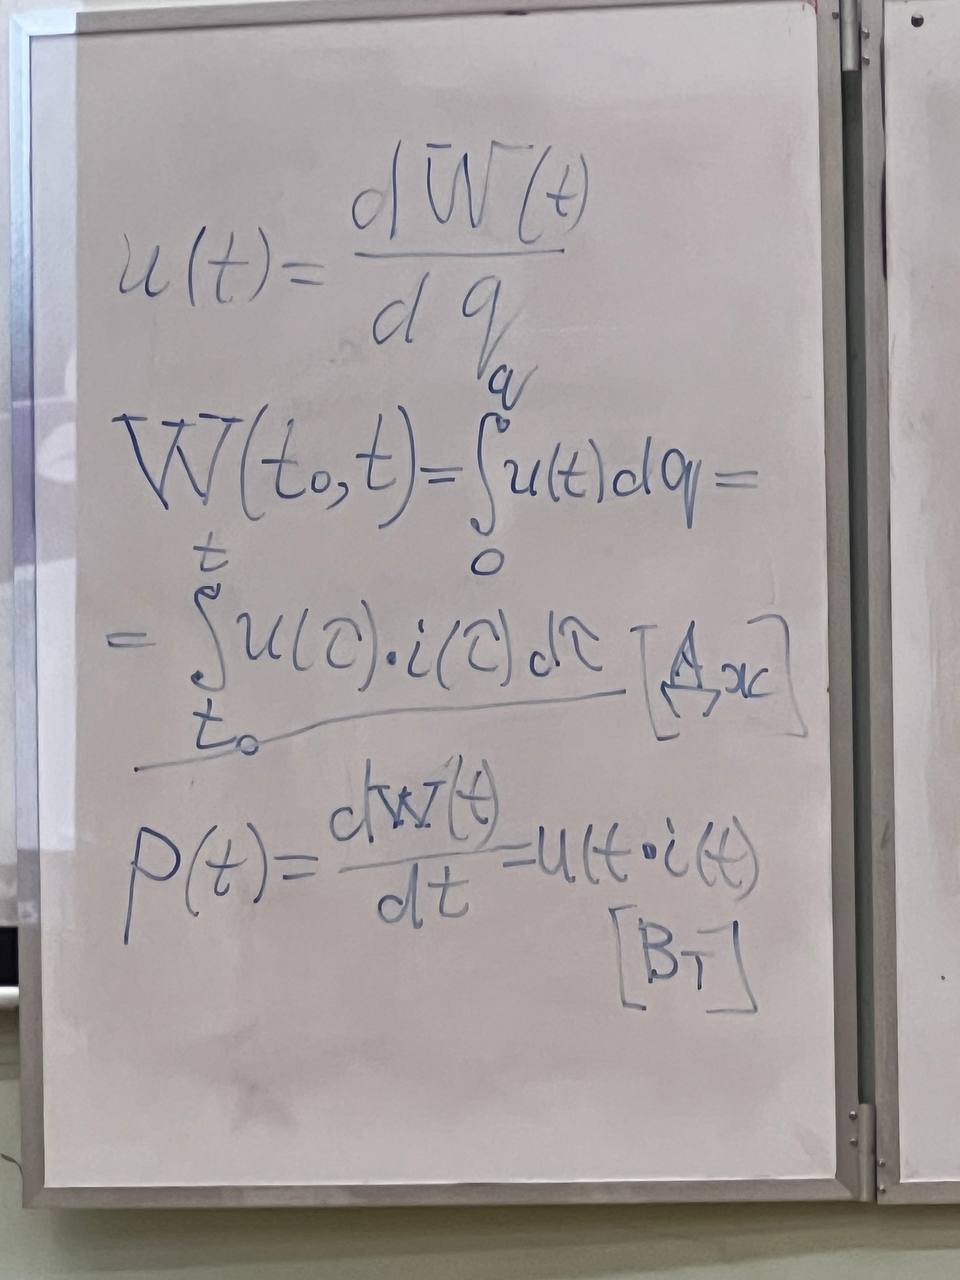 u(t) = dW(t) / dq
W(t₀,t) = ∫₀^q u(t) dq =
= ∫_{t₀}^t u(τ)·i(τ) dτ [Дж]
p(t) = dW(t) / dt = u(t·i(t)
[Вт]